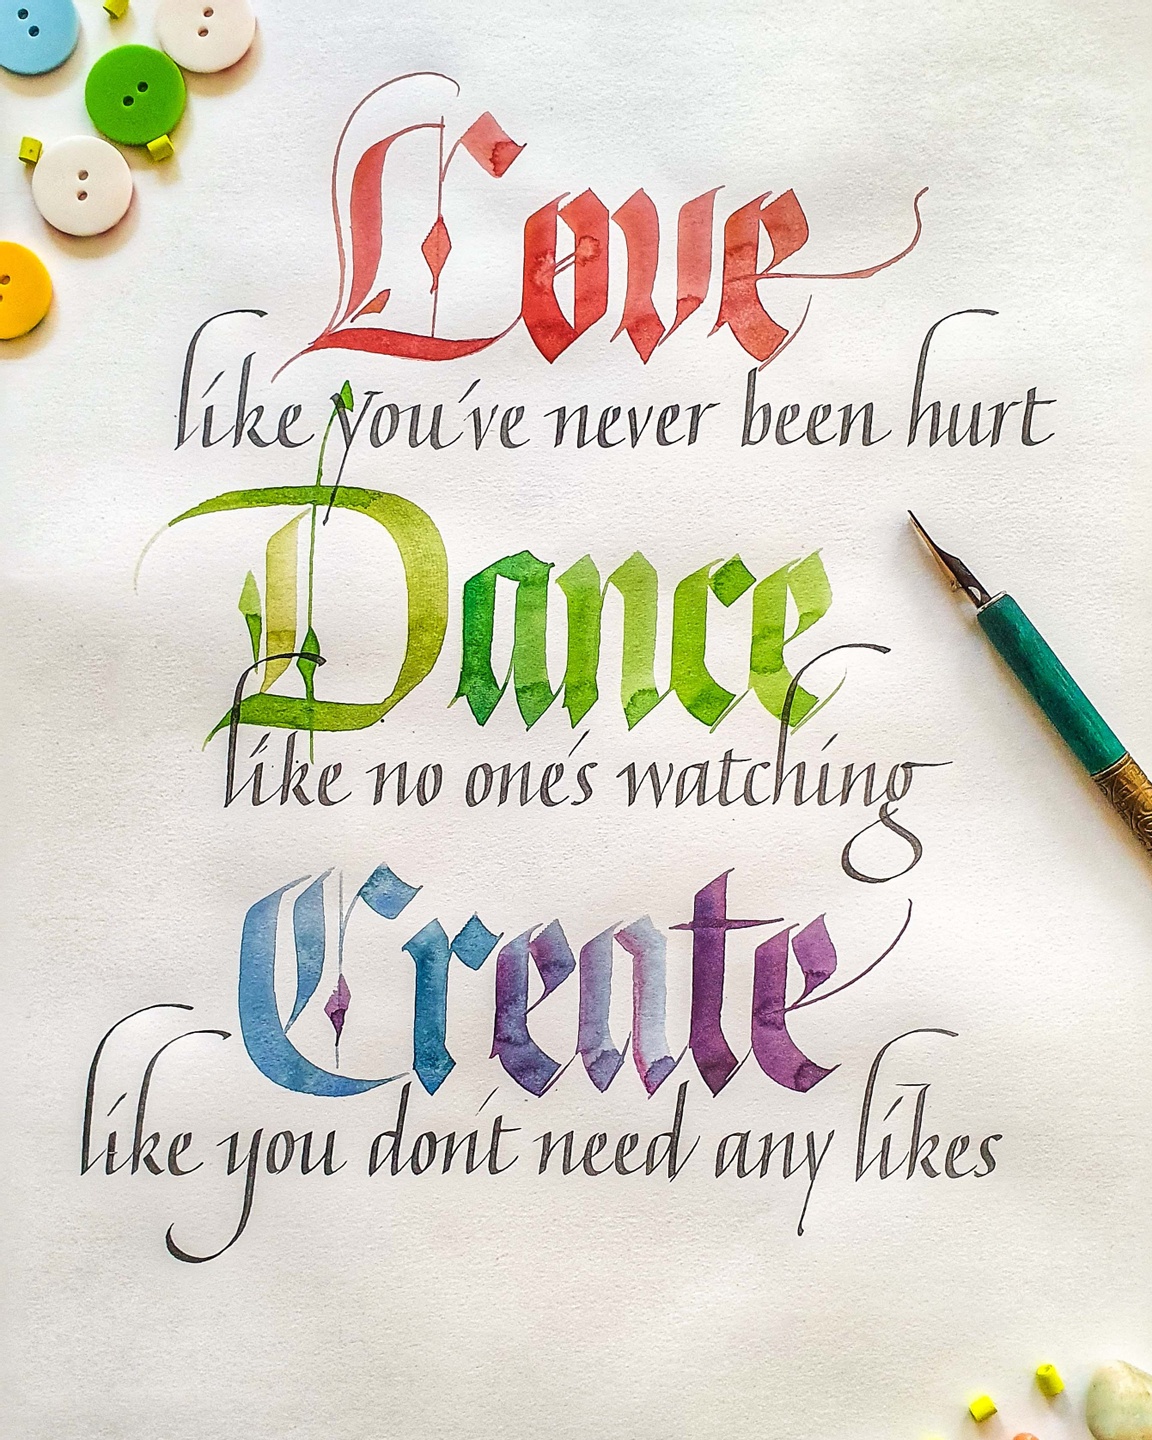 Love
like you've never been hurt
Dance
like no one's watching
Create
like you don't need any likes